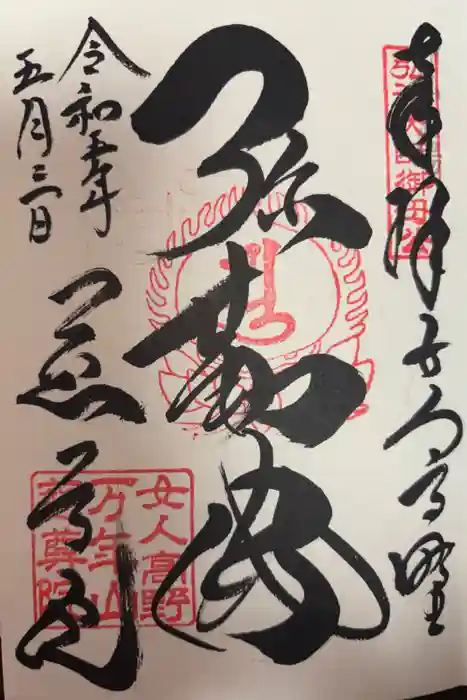 奉拝 女人高野
弘法大師御母公
弥勒佛
令和五年
五月三日
慈尊院
女人高野
万年山
慈尊院